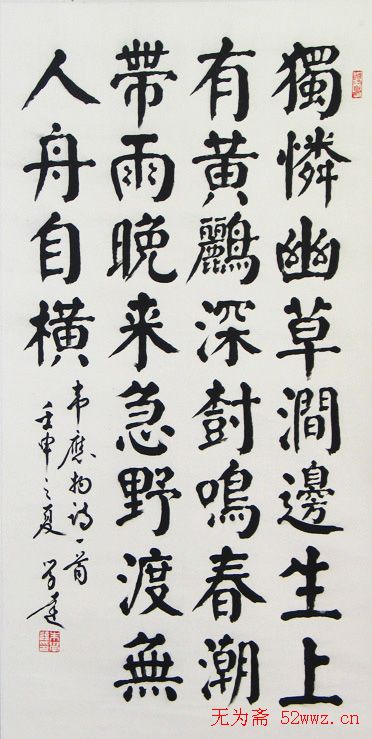 獨憐幽草澗邊生上
有黄鸝深樹鳴春潮
帶雨晚来急野渡無
人舟自横
韦應物诗一首
壬申之夏
无为斋 52wwz.cn